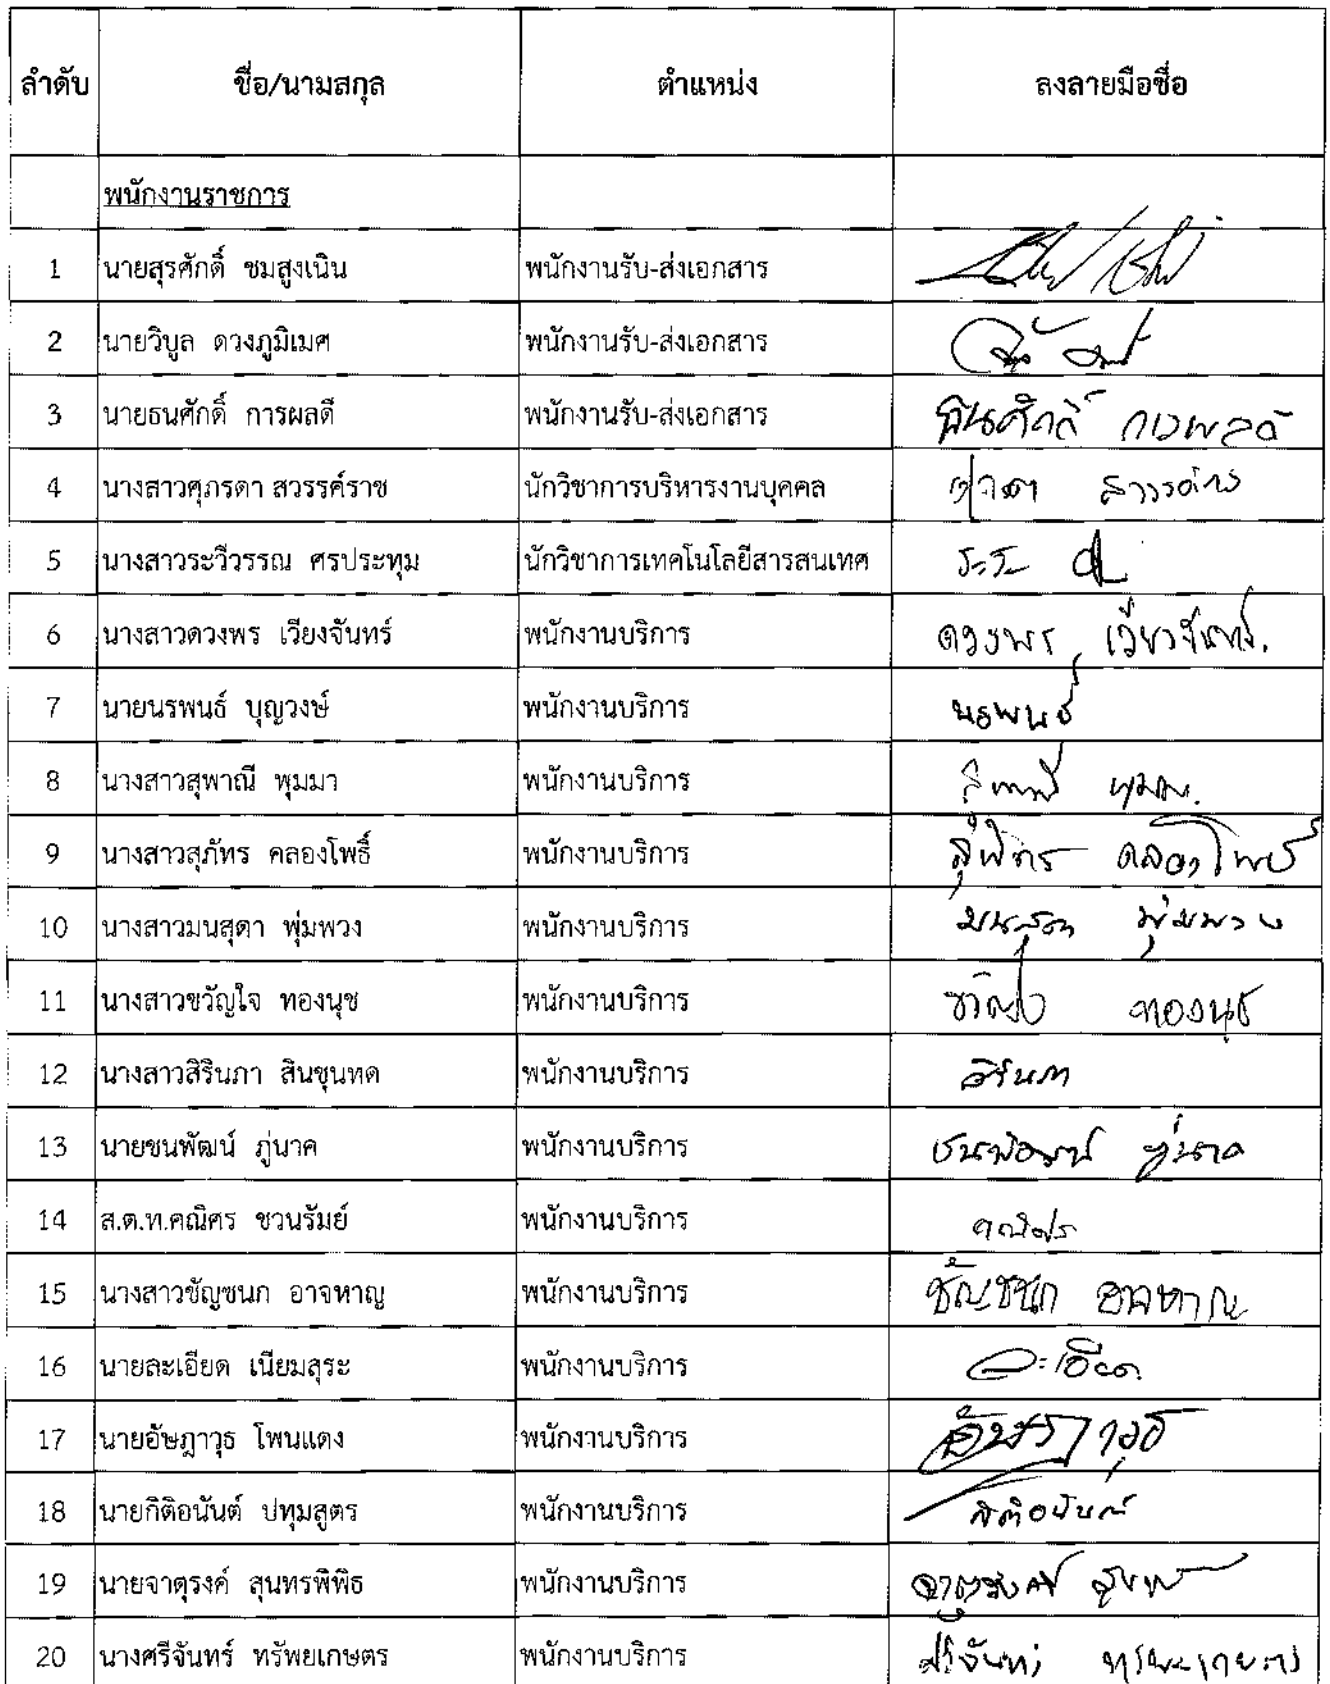 ลำดับ ชื่อ/นามสกุล ตำแหน่ง ลงลายมือชื่อ
พนักงานราชการ
1 นายสุรศักดิ์ ชมสูงเนิน พนักงานรับ-ส่งเอกสาร
2 นายวิบูล ดวงภูมิเมศ พนักงานรับ-ส่งเอกสาร
3 นายธนศักดิ์ การผลดี พนักงานรับ-ส่งเอกสาร ธนศักดิ์ การผลดี
4 นางสาวศุภรดา สวรรค์ราช นักวิชาการบริหารงานบุคคล
5 นางสาวระวีวรรณ ศรประทุม นักวิชาการเทคโนโลยีสารสนเทศ
6 นางสาวดวงพร เวียงจันทร์ พนักงานบริการ ดวงพร เวียงจันทร์
7 นายนรพนธ์ บุญวงษ์ พนักงานบริการ นรพนธ์
8 นางสาวสุพาณี พุมมา พนักงานบริการ สุพาณี พุมมา
9 นางสาวสุภัทร คลองโพธิ์ พนักงานบริการ สุภัทร คลองโพธิ์
10 นางสาวมนสุดา พุ่มพวง พนักงานบริการ มนสุดา พุ่มพวง
11 นางสาวขวัญใจ ทองนุช พนักงานบริการ ขวัญใจ ทองนุช
12 นางสาวสิรินภา สินขุนทด พนักงานบริการ สิรินภา
13 นายชนพัฒน์ ภู่นาค พนักงานบริการ ชนพัฒน์ ภู่นาค
14 ส.ต.ท.คณิศร ชวนรัมย์ พนักงานบริการ คณิศร
15 นางสาวชัญชนก อาจหาญ พนักงานบริการ ชัญชนก อาจหาญ
16 นายละเอียด เนียมสุระ พนักงานบริการ ละเอียด
17 นายอัษฎาวุธ โพนแดง พนักงานบริการ อัษฎาวุธ
18 นายกิติอนันต์ ปทุมสูตร พนักงานบริการ กิติอนันต์
19 นายจาตุรงค์ สุนทรพิพิธ พนักงานบริการ จาตุรงค์
20 นางศรีจันทร์ ทรัพยเกษตร พนักงานบริการ ศรีจันทร์ ทรัพยเกษตร